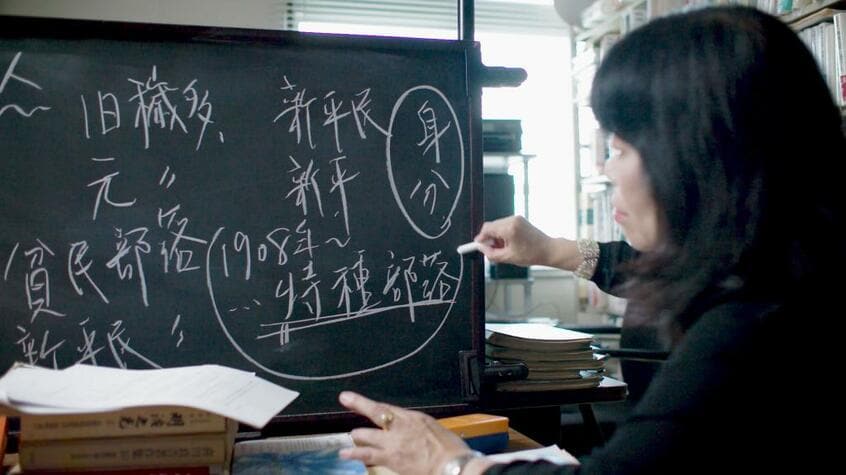 人〜
旧穢多、
元 〃
貧民部落
新平民 〃
新平民
新平
身分
1908年〜
…特種部落